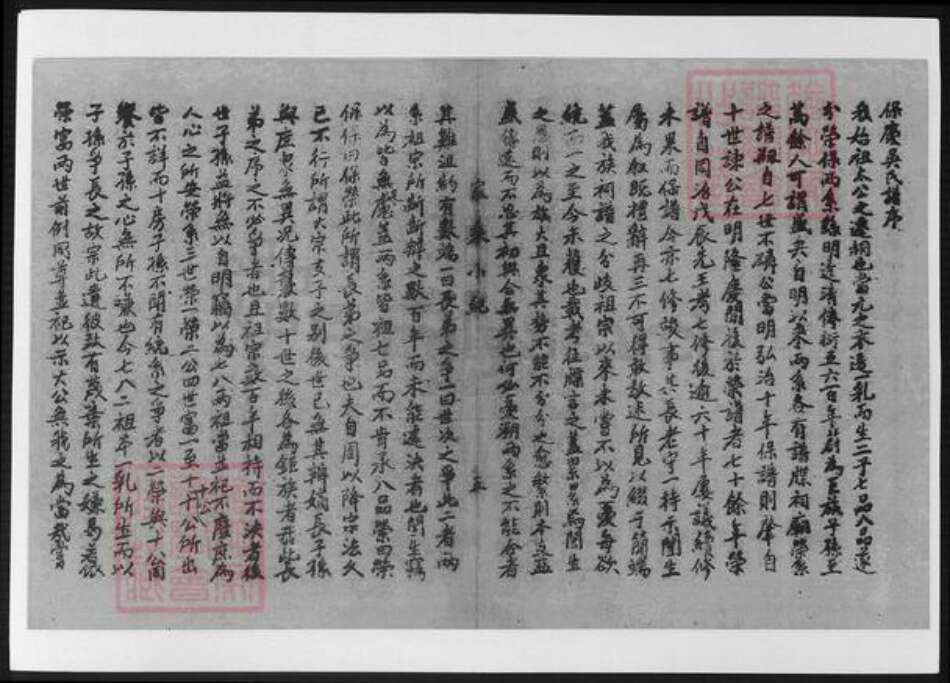 保慶吳氏譜序
我始祖太公之遷祠也當元之季遺一乳而生二子七品八品遂
分榮保兩系綿明迄清傳衍五六百年蔚為巨族子孫至
萬餘人可謂盛矣自明以來兩系各有譜牒祠廟榮系
之譜刱自七世不磷公當明弘治十年保譜則肇自
十世諫公在明隆慶間後於榮譜者七十餘年榮
譜自同治戊辰先王考七修後逾六十年屢議續修
未果而保譜今亦七修竣事其長老守一持示閏生
屬為敘既禮辭再三不可得敢述所見以綴于簡端
蓋我族祠譜之分歧祖宗以來未嘗不以為憂每欲
統而一之至今未獲也載考往牒言之蓋累累為閏生
之愚則以為族大且衆其勢不能不分分之愈繁則本支益
盛傳遠而不忘其初與合無異也何必憂期兩系之不能合者
家乘小統 五
其難泹約有數端一曰長弟之爭一曰世次之爭此二者兩
系祖宗所斷斷辨之數百年而未能遽決者也閏生竊
以為皆無慮蓋兩系皆祖七品而不肯承八品榮曰榮
保保曰保榮此所謂長弟之爭也夫自周以降宗法久
已不行所謂大宗支子之別後世已無其辨嫡長子孫
與庶衆無異況傳數十世之後各為鉅族者哉此長
弟之序之不必爭者也且祖宗數百年相持而不決者後
世子孫益將無以自明竊以為七八兩祖當並祀不廢庶為
人心之所安榮系三世榮一榮二公四世富一至十十八公所出
皆不詳而十房子孫不聞有統系之爭者以二榮與十公閭
譽於子孫之心無所不慊也今七八二祖本一乳所生而以
子孫爭長之故宗此遺彼致有蔑棄所生之嫌曷若依
榮富兩世前例同尊並祀以示大公無我之為當哉嘗